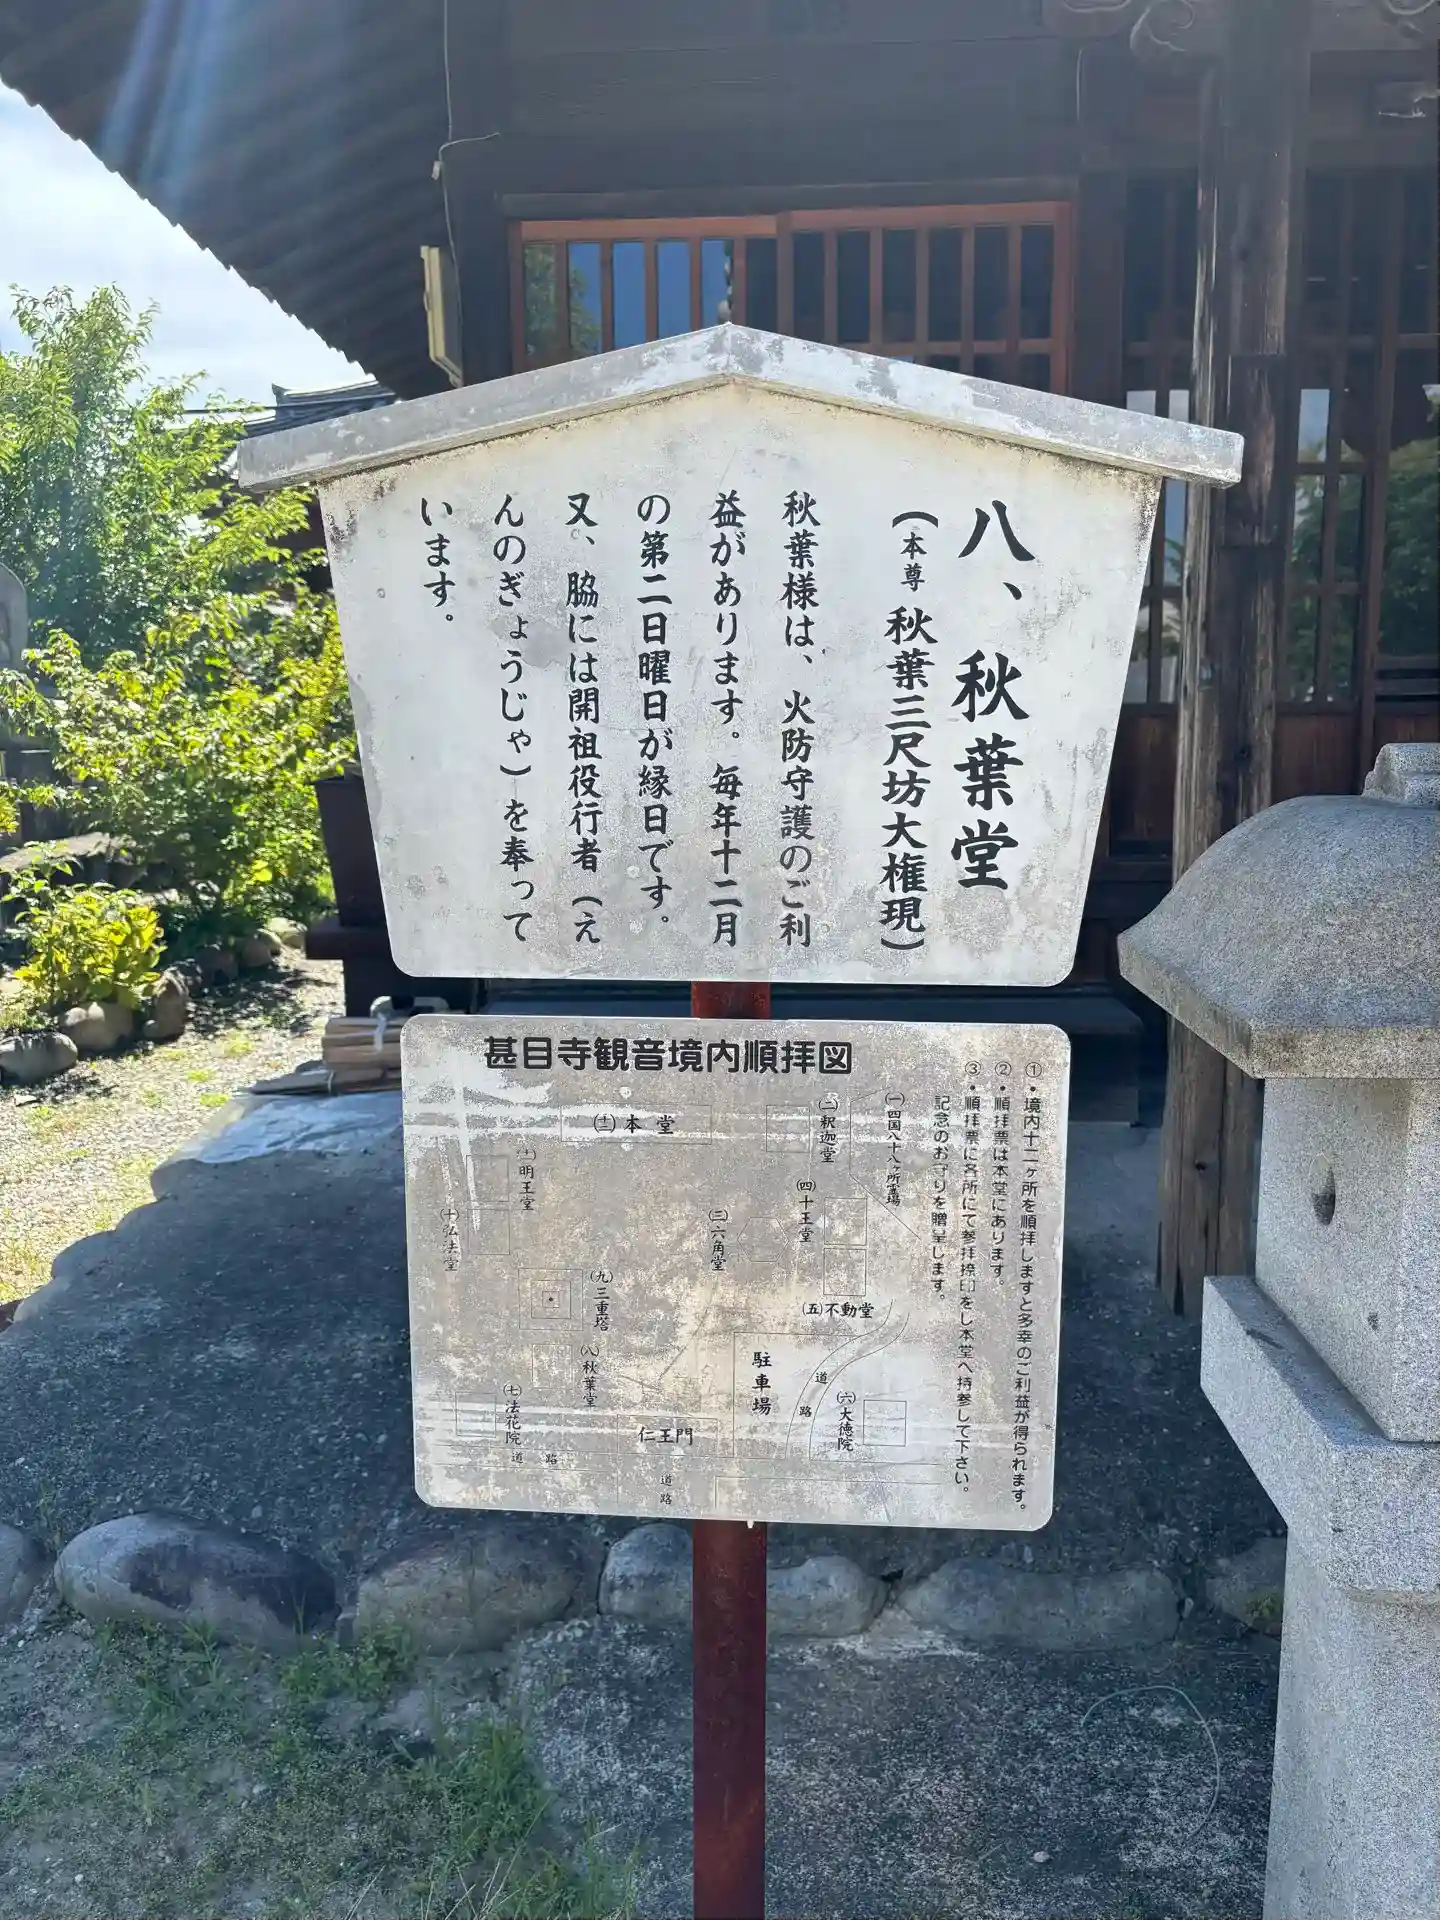 八、秋葉堂
（本尊 秋葉三尺坊大権現）
秋葉様は、火防守護のご利
益があります。毎年十二月
の第二日曜日が縁日です。
又、脇には開祖役行者（え
んのぎょうじゃ）を奉って
います。
甚目寺観音境内順拝図
①・境内十二ヶ所を順拝しますと多幸のご利益が得られます。
②・順拝票は本堂にあります。
③・順拝票に各所にて参拝捺印をし本堂へ持参して下さい。
記念のお守りを贈呈します。
㈠四国八十八ヶ所霊場
㈡釈迦堂
㈣十王堂
㈢六角堂
㈤不動堂
(十二)本堂
(十一)明王堂
㈩弘法堂
㈨三重塔
㈧秋葉堂
㈦法花院
㈥大徳院
駐車場
道路
仁王門
道路
道路